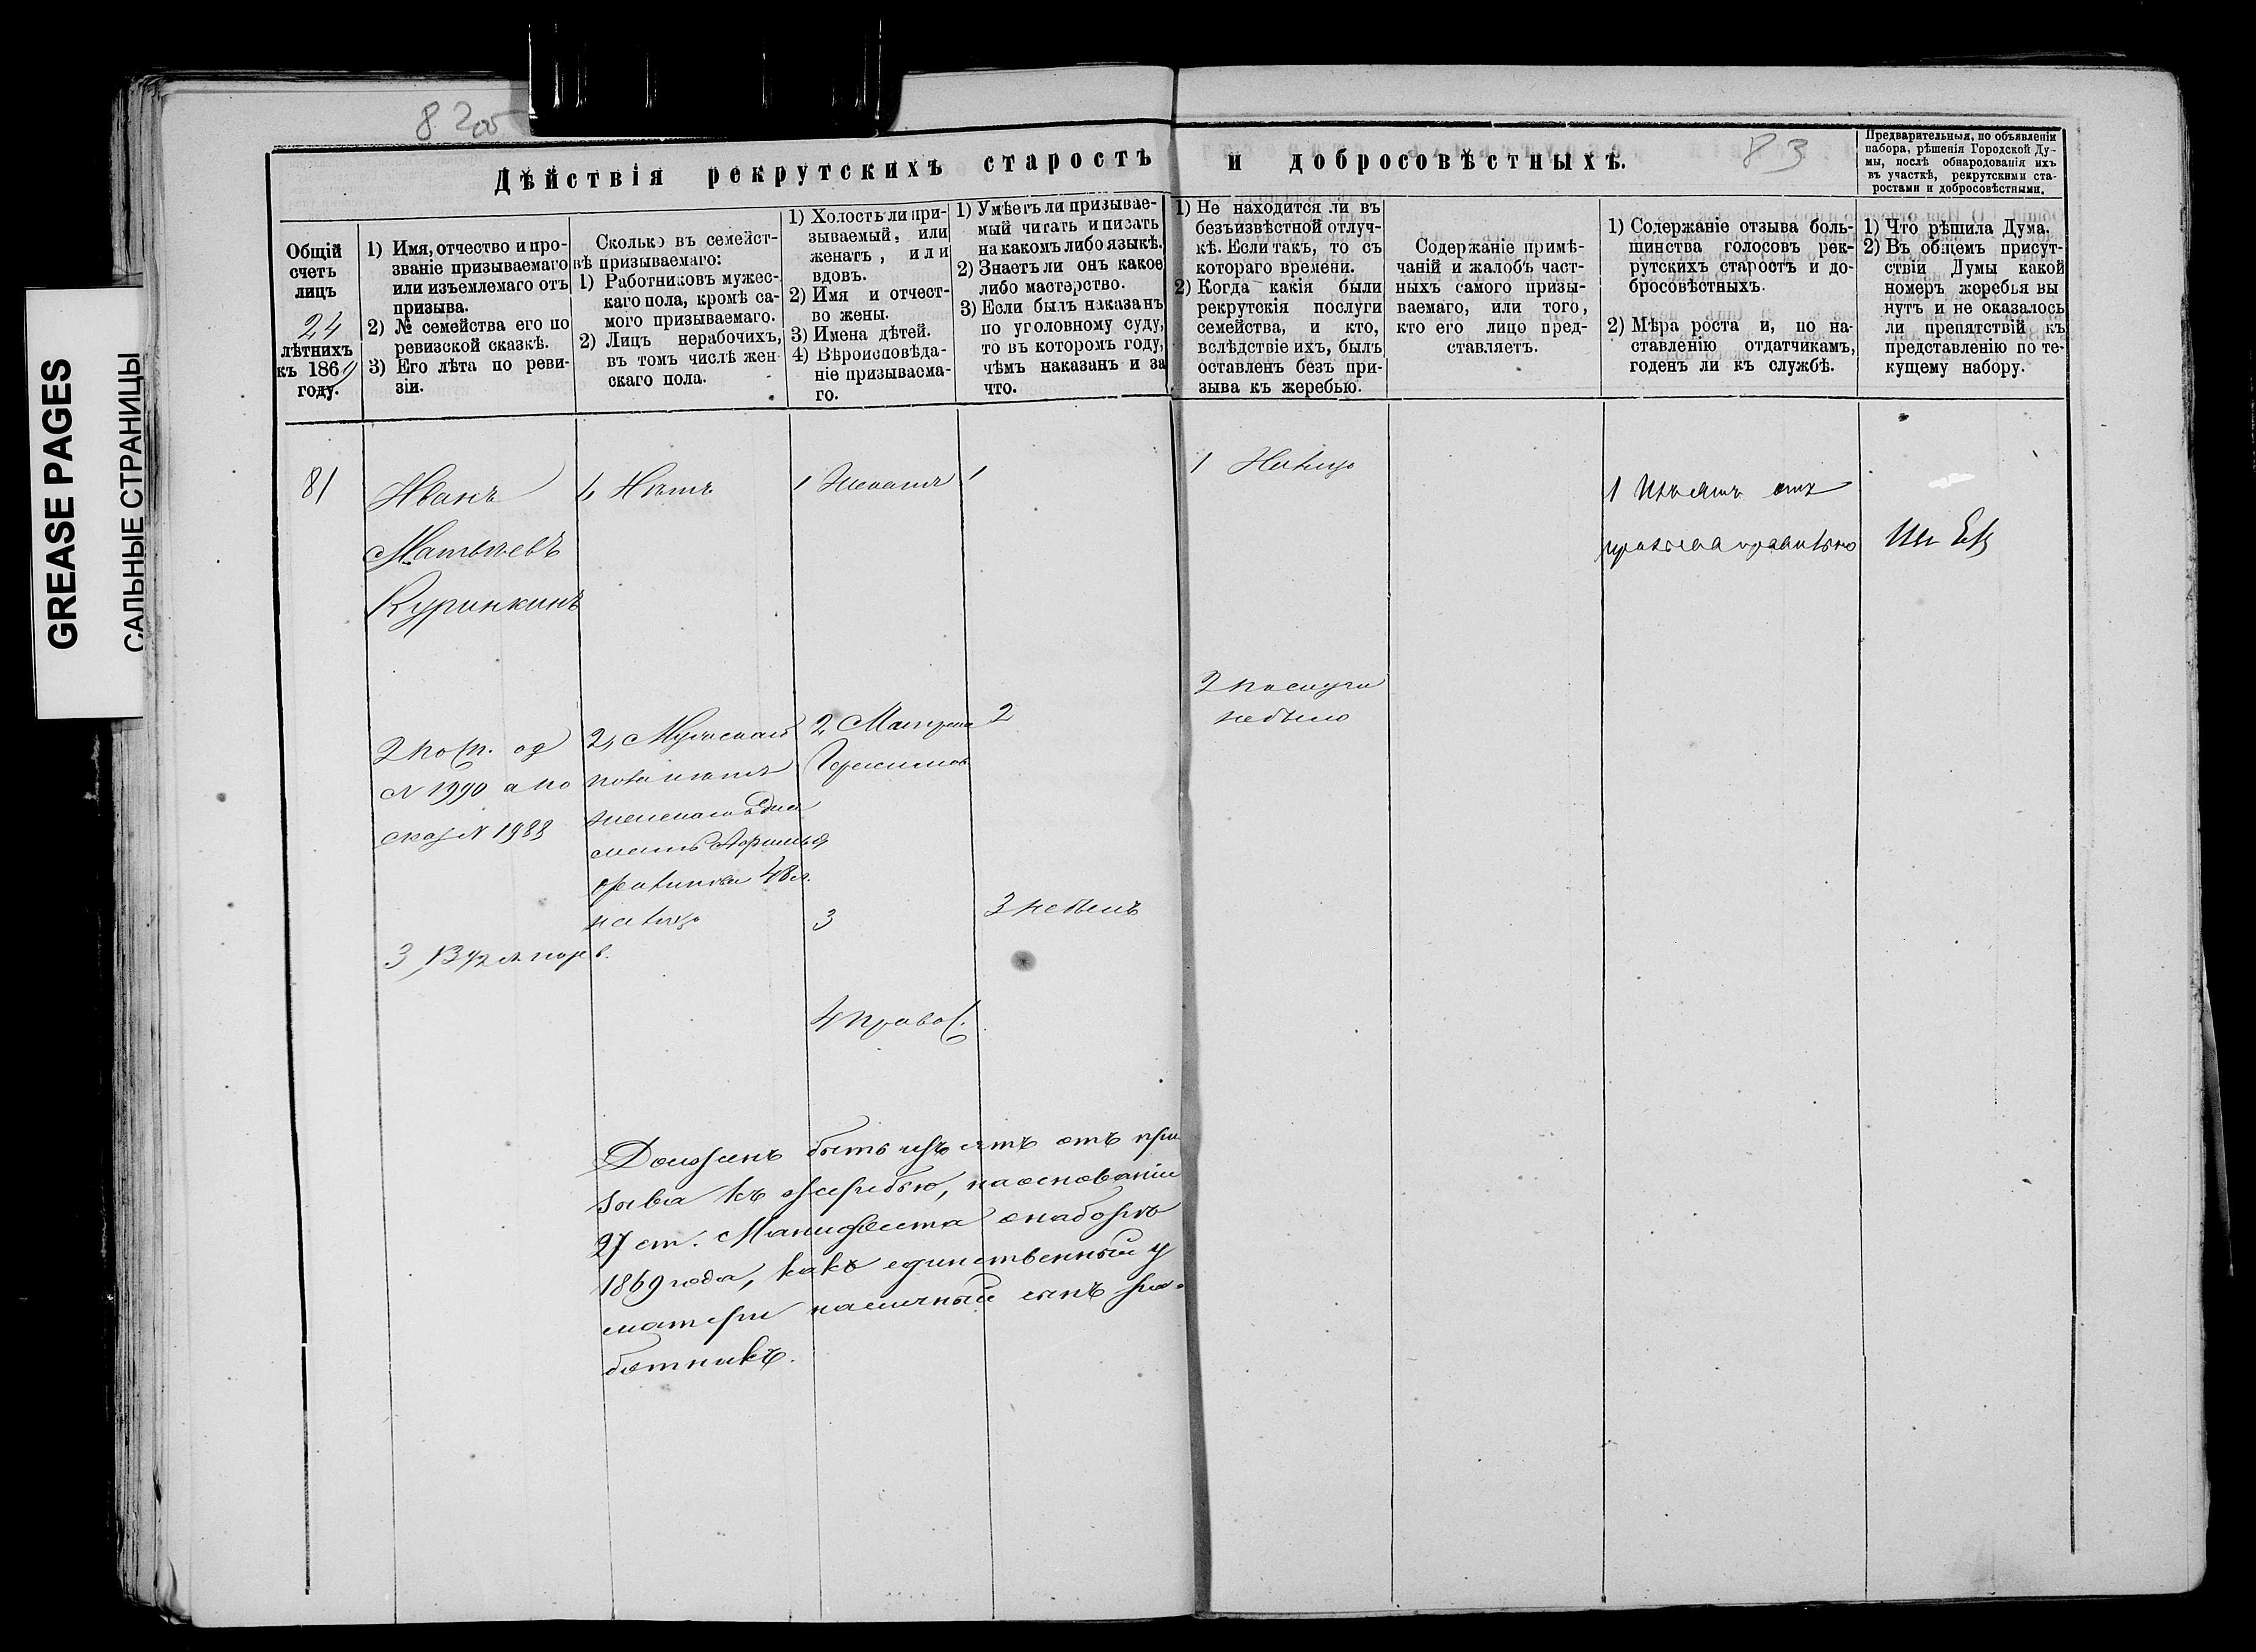 GREASE PAGES
САЛЬНЫЕ СТРАНИЦЫ
82об
83
Дѣйствія рекрутскихъ старостъ и добросовѣстныхъ.
Предварительныя, по объявленіи
набора, рѣшенія Городской Ду-
мы, послѣ обнародованія ихъ
въ участкѣ, рекрутскими ста-
ростами и добросовѣстными.
Общій
счетъ
лицъ
24
лѣтнихъ
къ 1869
году.
1) Имя, отчество и про-
званіе призываемаго
или изъемлемаго отъ
призыва.
2) № семейства его по
ревизской сказкѣ.
3) Его лѣта по реви-
зіи.
Сколько въ семейст-
вѣ призываемаго:
1) Работниковъ мужес-
каго пола, кромѣ са-
мого призываемаго.
2) Лицъ нерабочихъ,
въ томъ числѣ жен-
скаго пола.
1) Холостъ ли при-
зываемый, или
женатъ, или
вдовъ.
2) Имя и отчест-
во жены.
3) Имена дѣтей.
4) Вѣроисповѣда-
ніе призываема-
го.
1) Умѣетъ ли призывае-
мый читать и писать
на какомъ либо языкѣ.
2) Знаетъ ли онъ какое
либо мастерство.
3) Если былъ наказанъ
по уголовному суду,
то въ которомъ году,
чѣмъ наказанъ и за
что.
1) Не находится ли въ
безъизвѣстной отлуч-
кѣ. Если такъ, то съ
котораго времени.
2) Когда какія были
рекрутскія послуги
семейства, и кто,
вслѣдствіе ихъ, былъ
оставленъ безъ при-
зыва къ жеребью.
Содержаніе примѣ-
чаній и жалобъ част-
ныхъ самого призы-
ваемаго, или того,
кто его лицо пред-
ставляетъ.
1) Содержаніе отзыва боль-
шинства голосовъ рек-
рутскихъ старостъ и до-
бросовѣстныхъ.
2) Мѣра роста и, по на-
ставленію отдатчикамъ,
годенъ ли къ службѣ.
1) Что рѣшила Дума.
2) Въ общемъ присут-
ствіи Думы какой
номеръ жеребья вы
нутъ и не оказалось
ли препятствій къ
представленію по те-
кущему набору.
81
Иванъ
Матвѣевъ
Куринкинъ
2 по
№ 1990 а по
сказ № 1988
3, 13 1/2 л. по рев.
1, Нѣтъ
2, Мужскаго
пола нѣтъ
женскаго одна
мать
48 л.
на лицо
1 Женатъ
2, Матрена
3
4 Правос.
1
2
3 не былъ
1 На лицо
2 послуги
не было
1 Изъятъ отъ
призыва правильно
Должен быть изъятъ отъ при
зыва къ жеребью, на основаніи
27 ст. Манифеста о наборѣ
1869 года, какъ единственный у
матери наличный сынъ ра-
ботникъ.